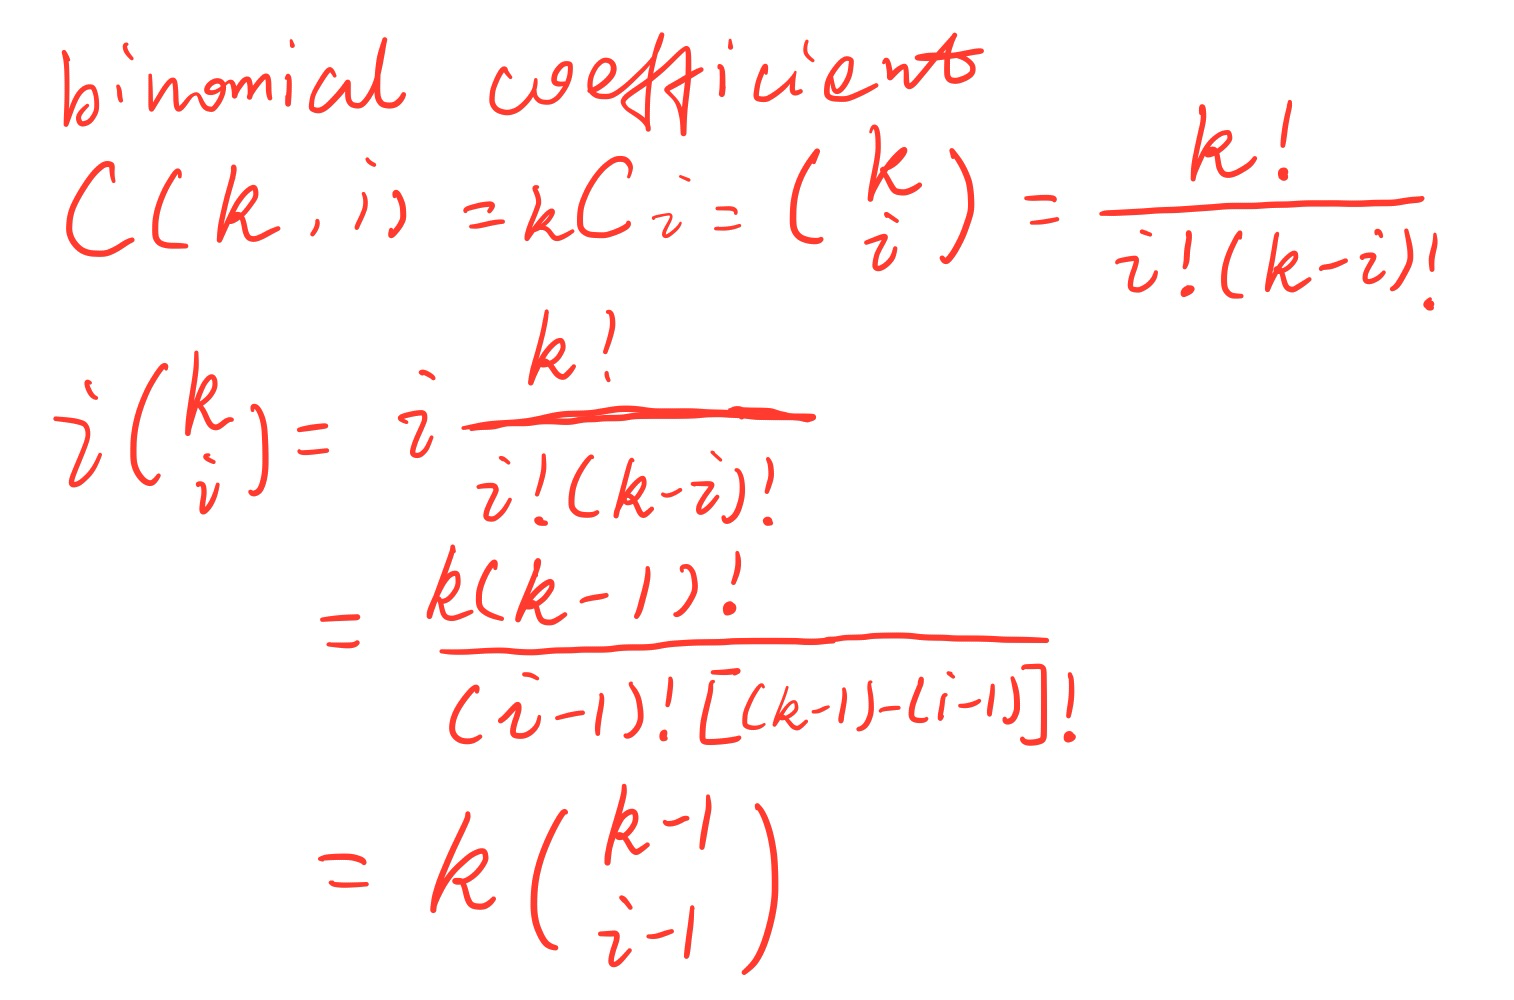 binomial coefficient
C(k,i) = kCi = (k i) = k! / i!(k-i)!
i(k i) = i k! / i!(k-i)!
= k(k-1)! / (i-1)![(k-1)-(i-1)]!
= k(k-1 i-1)